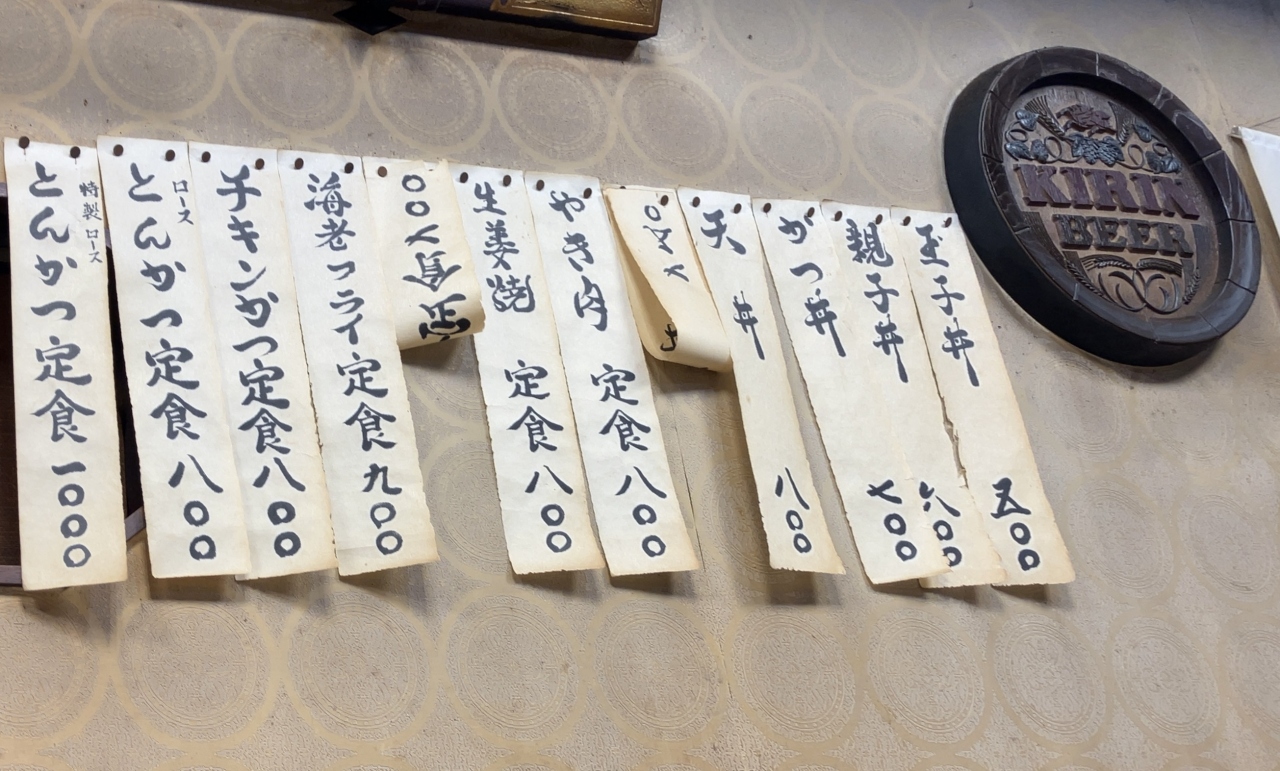 KIRIN
BEER
玉子丼 五〇〇
親子丼 六〇〇
かつ丼 七〇〇
天丼 八〇〇
やき肉定食 八〇〇
生姜焼定食 八〇〇
定食八〇〇
海老フライ定食九〇〇
チキンかつ定食八〇〇
ロース
とんかつ定食八〇〇
特製ロース
とんかつ定食一〇〇〇